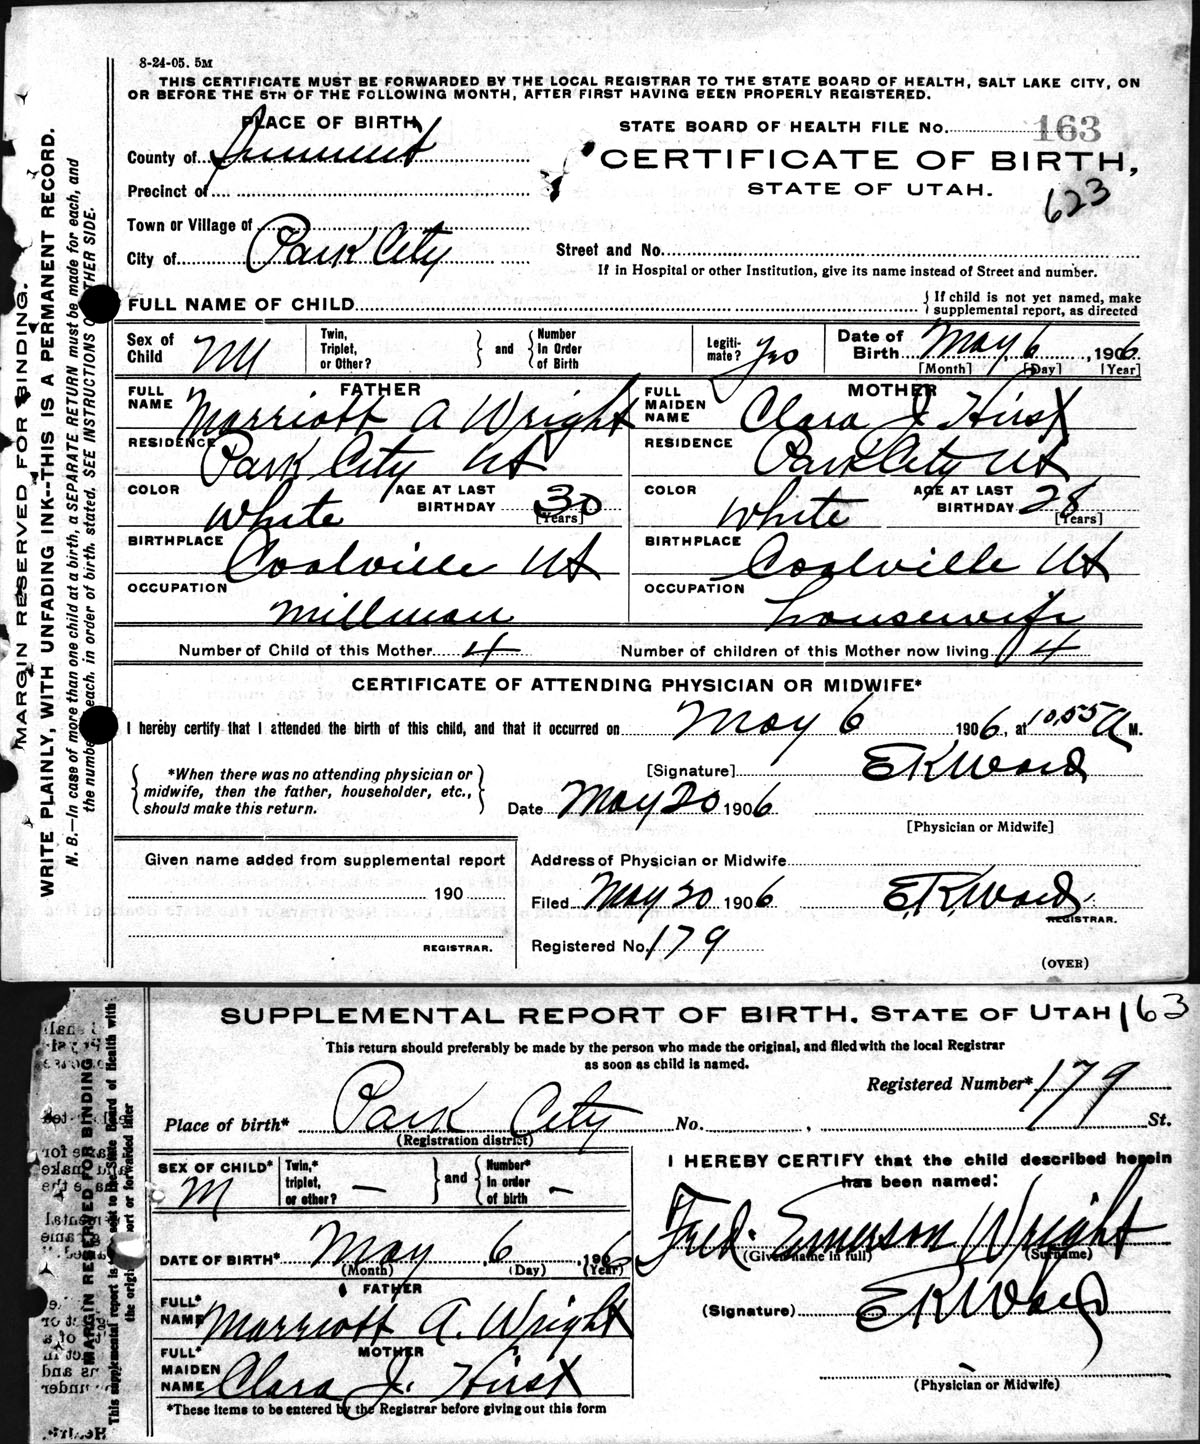 8-24-05. 5M
THIS CERTIFICATE MUST BE FORWARDED BY THE LOCAL REGISTRAR TO THE STATE BOARD OF HEALTH, SALT LAKE CITY, ON
OR BEFORE THE 5TH OF THE FOLLOWING MONTH, AFTER FIRST HAVING BEEN PROPERLY REGISTERED.
MARGIN RESERVED FOR BINDING.
WRITE PLAINLY, WITH UNFADING INK--THIS IS A PERMANENT RECORD.
N. B.—In case of more than one child at a birth, a SEPARATE RETURN must be made for each, and
the number each, in order of birth, stated. SEE INSTRUCTIONS OTHER SIDE.
PLACE OF BIRTH
STATE BOARD OF HEALTH FILE No. 163
County of Summit
CERTIFICATE OF BIRTH,
Precinct of
STATE OF UTAH.
623
Town or Village of
City of Park City
Street and No.
If in Hospital or other Institution, give its name instead of Street and number.
FULL NAME OF CHILD
{ If child is not yet named, make
supplemental report, as directed
Sex of Child M
Twin, Triplet, or Other?
} and {
Number In Order of Birth
Legitimate? Yes
Date of Birth May 6, 1906
[Month] [Day] [Year]
FATHER
MOTHER
FULL NAME Marriott A Wright
FULL MAIDEN NAME Clara J Hirst
RESIDENCE Park City Ut
RESIDENCE Park City Ut
COLOR White AGE AT LAST BIRTHDAY 30 [Years]
COLOR White AGE AT LAST BIRTHDAY 28 [Years]
BIRTHPLACE Coalville Ut
BIRTHPLACE Coalville Ut
OCCUPATION millman
OCCUPATION housewife
Number of Child of this Mother 4
Number of children of this Mother now living 4
CERTIFICATE OF ATTENDING PHYSICIAN OR MIDWIFE*
I hereby certify that I attended the birth of this child, and that it occurred on May 6 1906, at 10.55 A M.
{ *When there was no attending physician or
midwife, then the father, householder, etc.,
should make this return. }
[Signature] E K Ward
Date May 20 1906
[Physician or Midwife]
Given name added from supplemental report
190
REGISTRAR.
Address of Physician or Midwife
Filed May 20 1906 E. K. Ward
REGISTRAR.
Registered No. 179
(OVER)
SUPPLEMENTAL REPORT OF BIRTH. STATE OF UTAH 163
This return should preferably be made by the person who made the original, and filed with the local Registrar
as soon as child is named.
MARGIN RESERVED FOR BINDING
Registered Number* 179
Place of birth* Park City No. , St.
(Registration district)
SEX OF CHILD* M
Twin,* triplet, or other? —
} and {
Number* In order of birth —
I HEREBY CERTIFY that the child described herein
has been named:
DATE OF BIRTH* May 6, 1906
(Month) (Day) (Year)
Fred. Emerson Wright
(Given name in full) (Surname)
FATHER
FULL* NAME Marriott A. Wright
(Signature) E K Ward
MOTHER
FULL* MAIDEN NAME Clara J. Hirst
(Physician or Midwife)
*These items to be entered by the Registrar before giving out this form